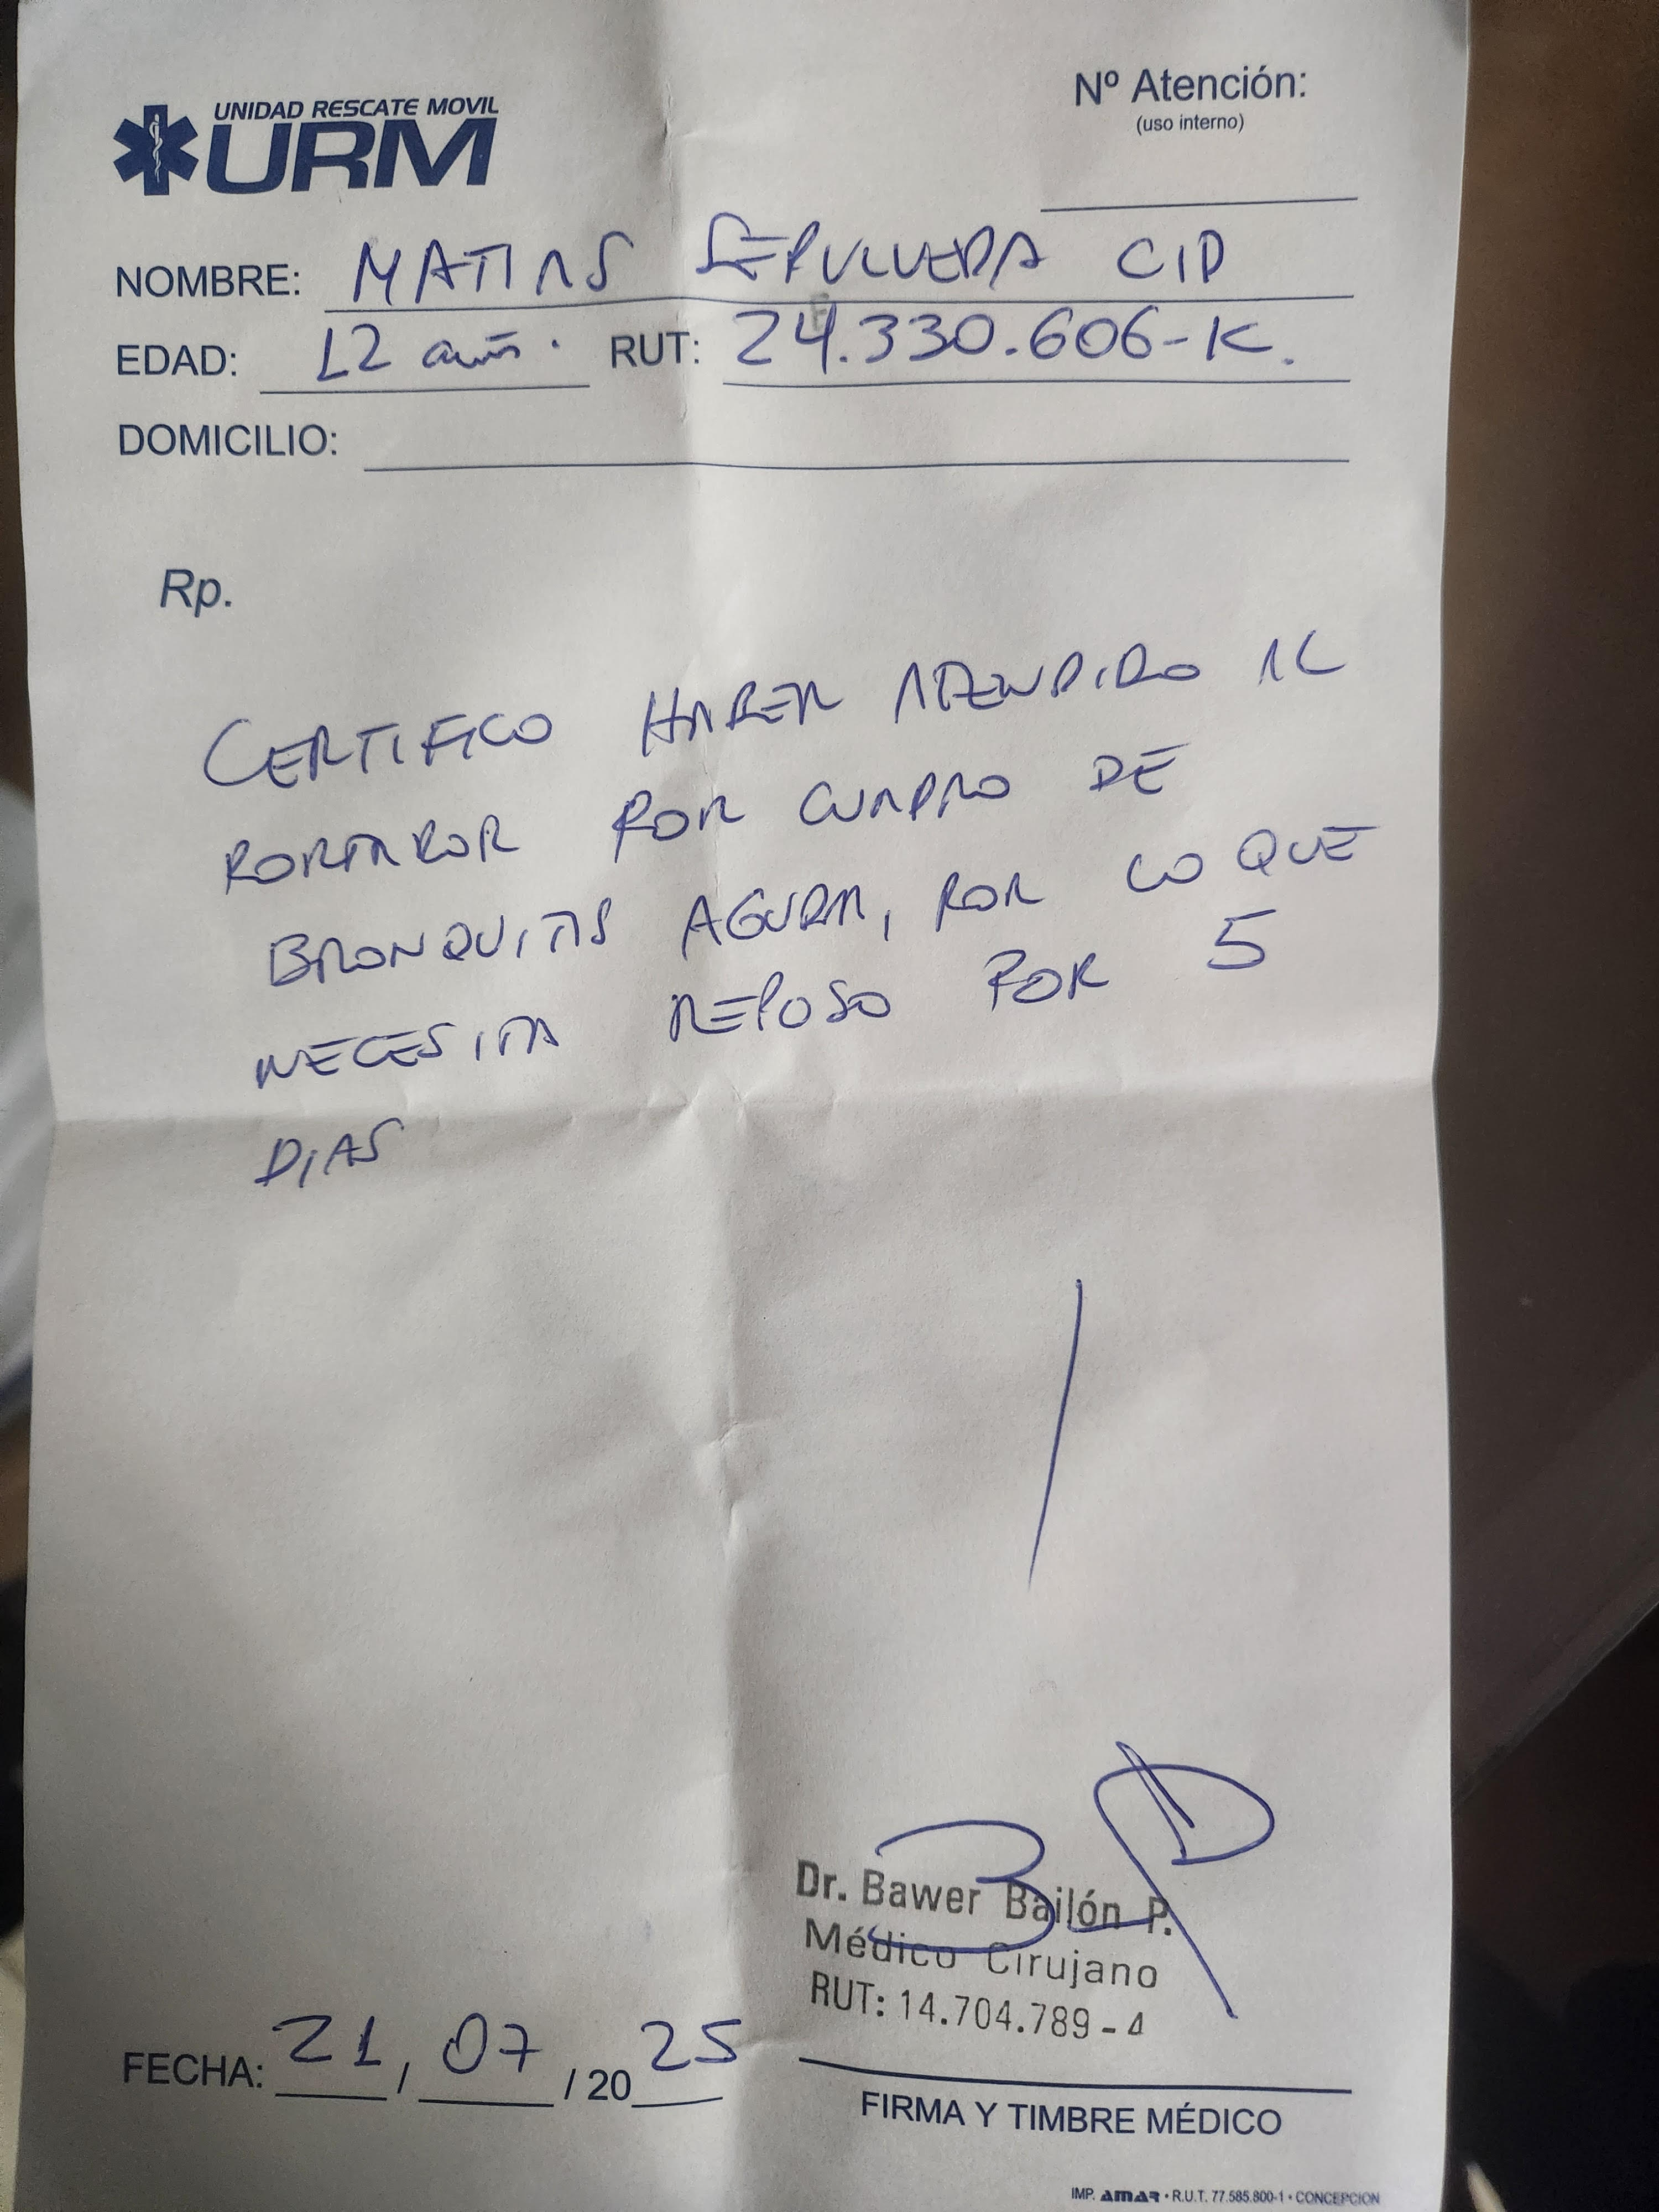 UNIDAD RESCATE MOVIL
URM
Nº Atención:
(uso interno)
NOMBRE: MATIAS SEPULVEDA CID
EDAD: 12 años. RUT: 24.330.606-K.
DOMICILIO:
Rp.
CERTIFICO HABER ATENDIDO AL
PORTADOR POR CUADRO DE
BRONQUITIS AGUDA, POR LO QUE
NECESITA REPOSO POR 5
DIAS
Dr. Bawer Bailón P.
Médico Cirujano
RUT: 14.704.789-4
FECHA: 21/07/2025
FIRMA Y TIMBRE MÉDICO
IMP. AMAR • R.U.T. 77.585.800-1 • CONCEPCION